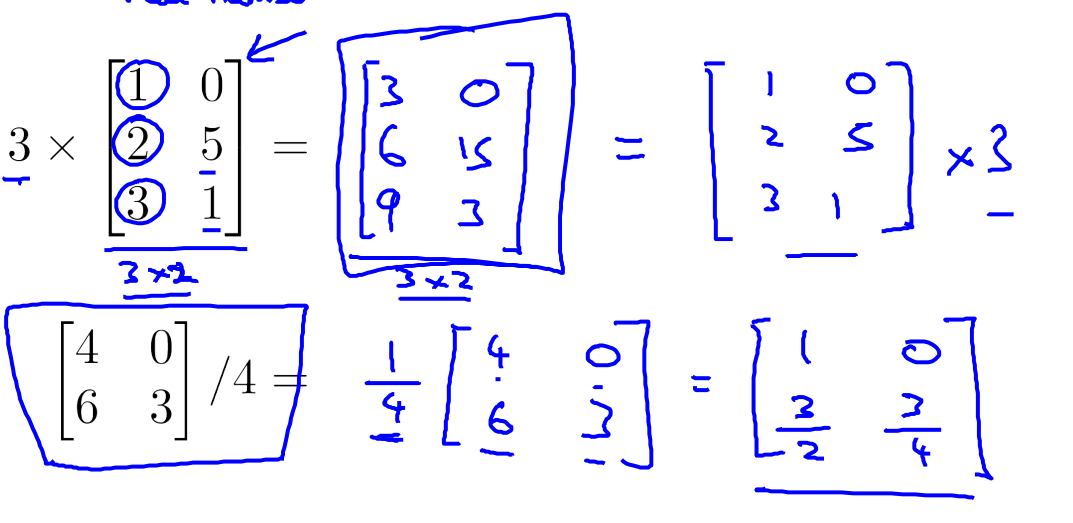 3 × [1 0; 2 5; 3 1] = [3 0; 6 15; 9 3] = [1 0; 2 5; 3 1] × 3
3 × 2 3 × 2
[4 0; 6 3] /4 = 1/4 [4 0; 6 3] = [1 0; 3/2 3/4]